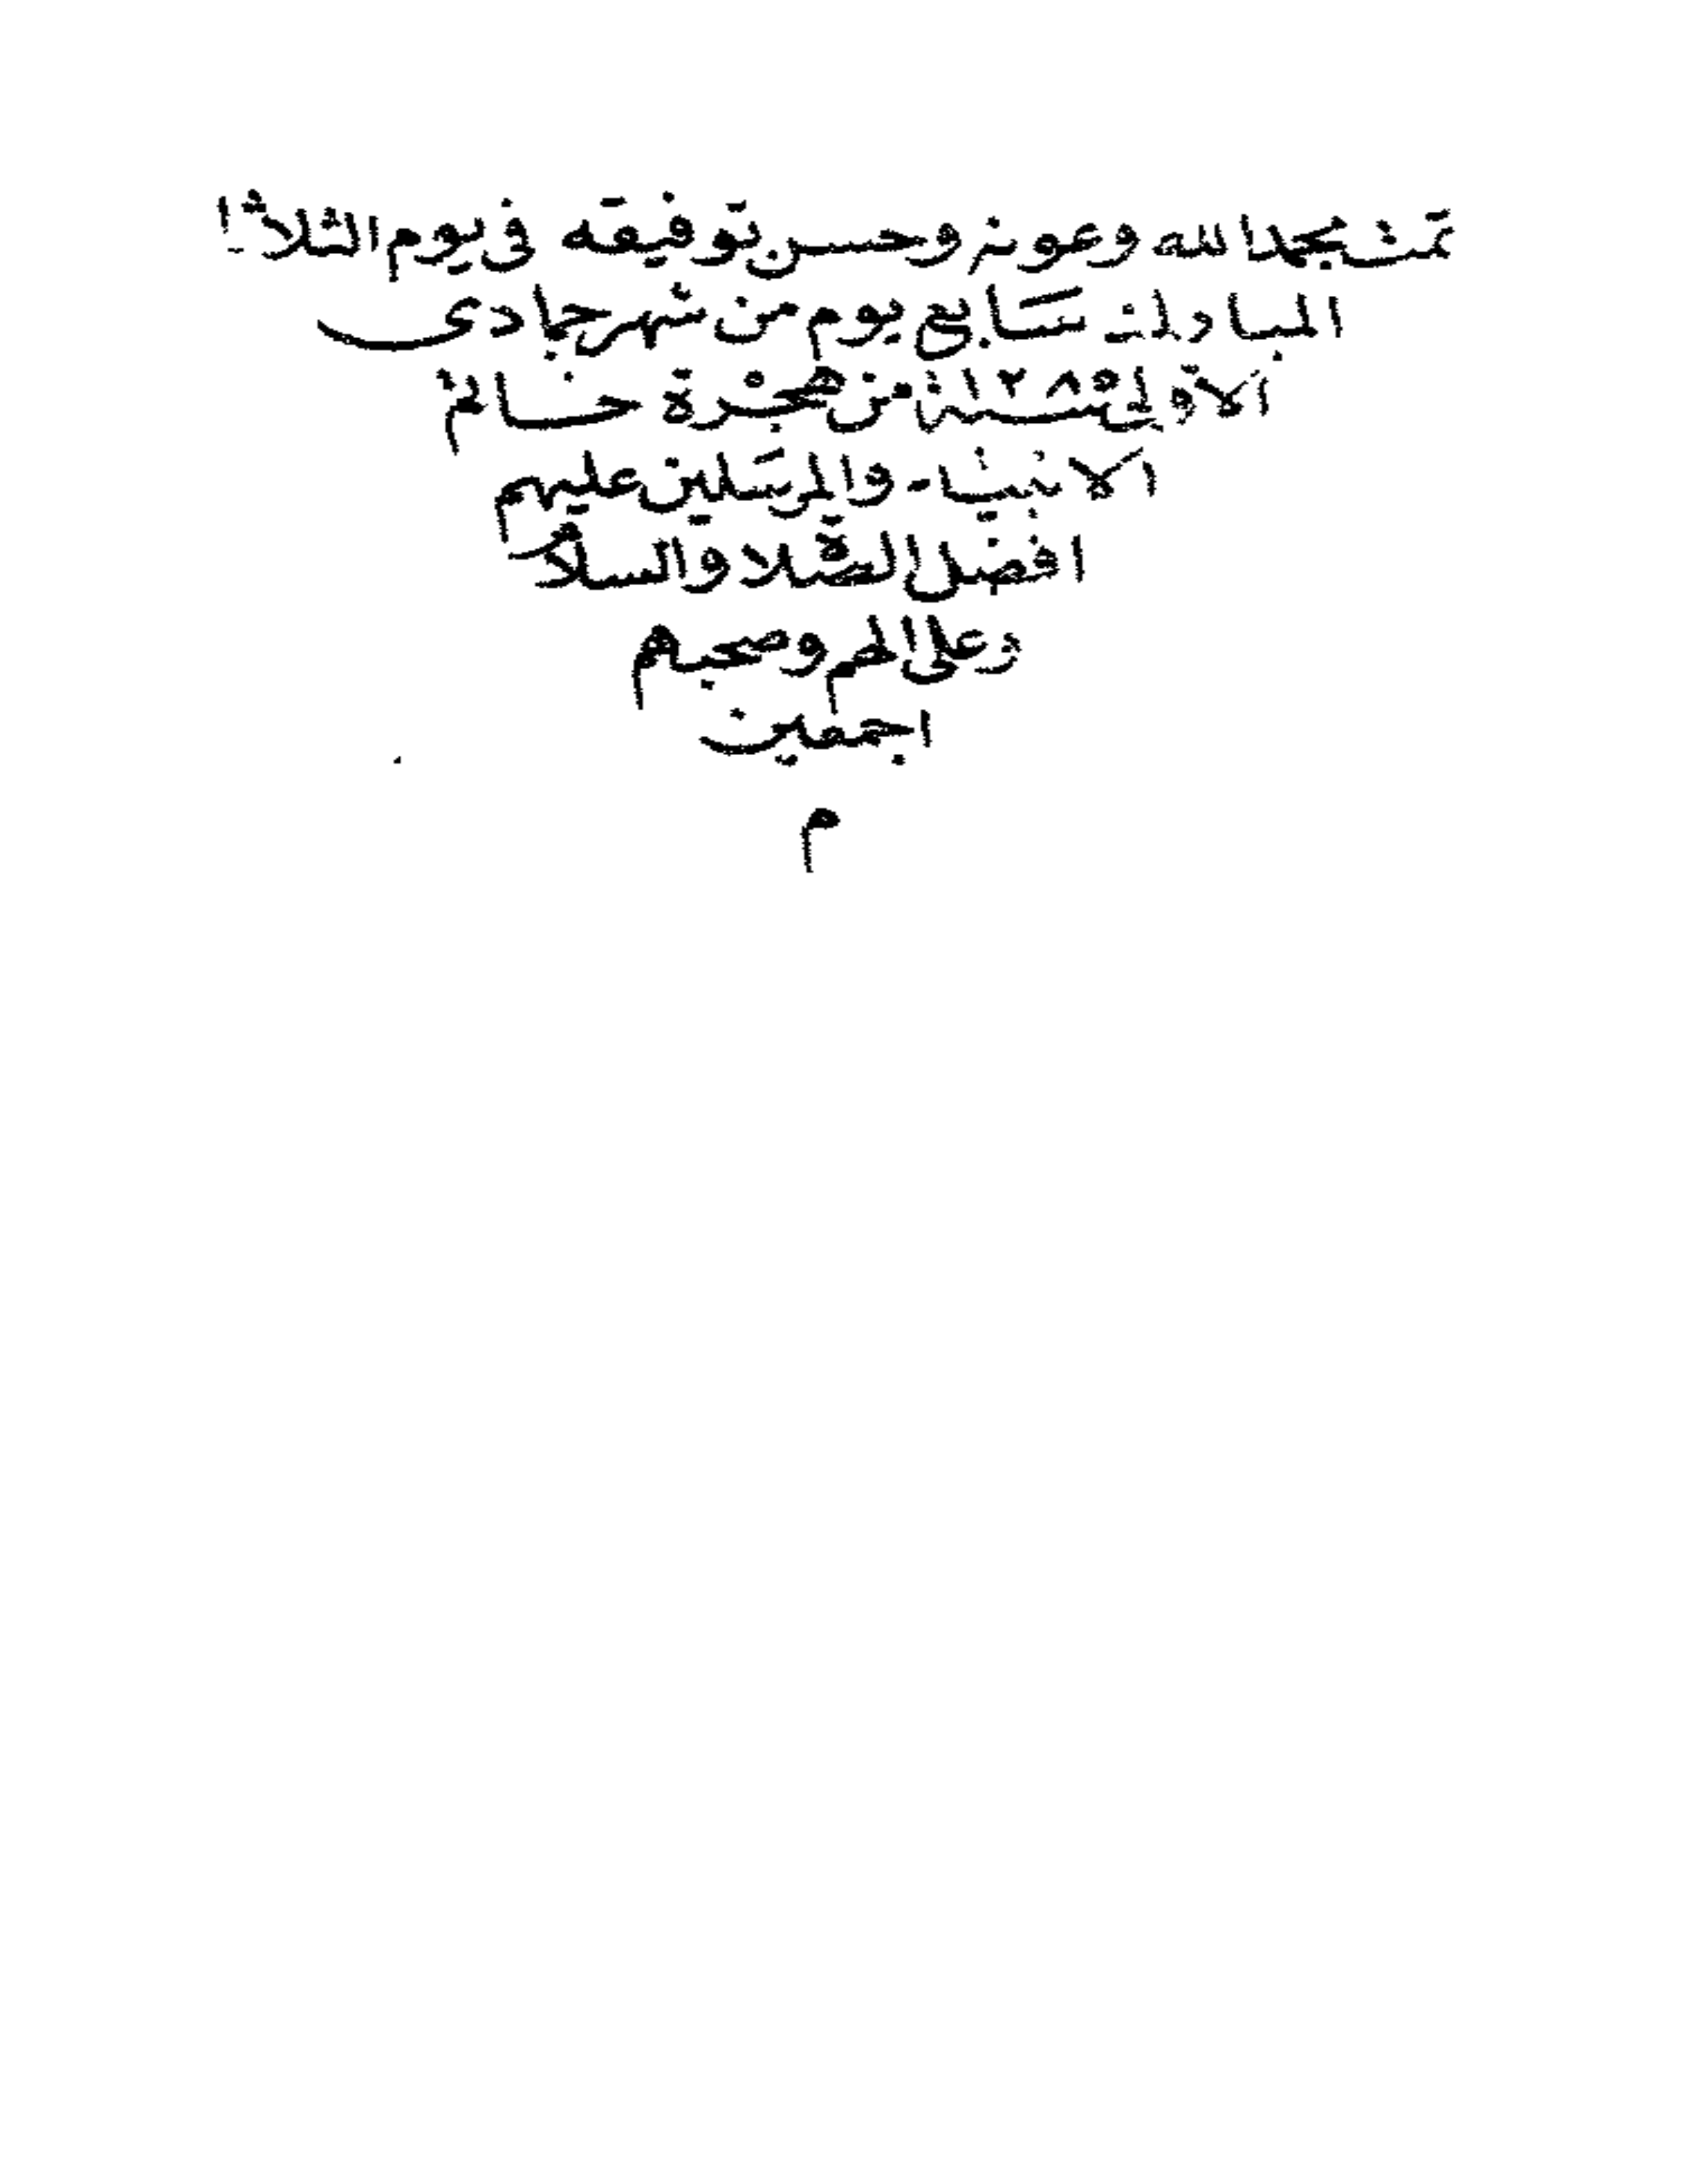 تمت بحمد الله وعونه وحسن توفيقه في يوم الثلاثا
المبارك سابع يوم من شهر جمادى
الاولى سنة ١٢٨٥ من هجرة خاتم
الانبياء والمرسلين عليهم
افضل الصلاة والسلام
وعلى الهم وصحبهم
اجمعين
م